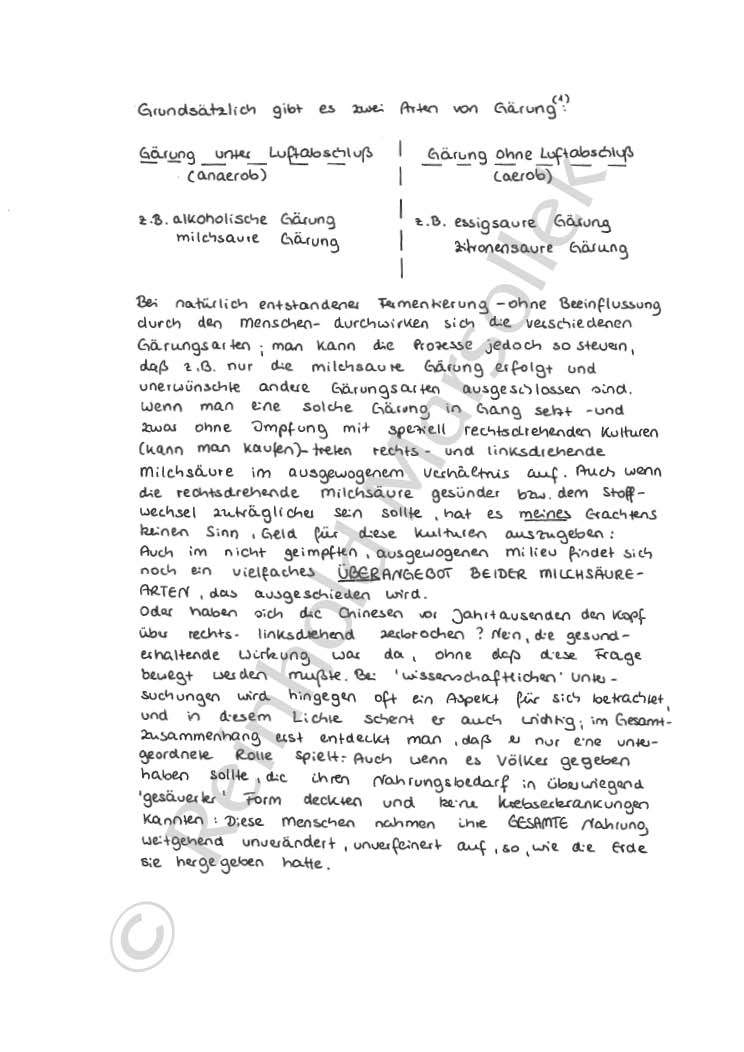 Grundsätzlich gibt es zwei Arten von Gärung(1):
Gärung unter Luftabschluß | Gärung ohne Luftabschluß
(anaerob) | (aerob)
z.B. alkoholische Gärung | z.B. essigsaure Gärung
milchsaure Gärung | zitronensaure Gärung
Bei natürlich entstandener Fermentierung - ohne Beeinflussung
durch den Menschen - durchwirken sich die verschiedenen
Gärungsarten; man kann die Prozesse jedoch so steuern,
daß z.B. nur die milchsaure Gärung erfolgt und
unerwünschte andere Gärungsarten ausgeschlossen sind.
Wenn man eine solche Gärung in Gang setzt - und
zwar ohne Impfung mit speziell rechtsdrehenden Kulturen
(kann man kaufen) - treten rechts- und linksdrehende
Milchsäure im ausgewogenem Verhältnis auf. Auch wenn
die rechtsdrehende Milchsäure gesünder bzw. dem Stoff-
wechsel zuträglicher sein sollte, hat es meines Erachtens
keinen Sinn, Geld für diese Kulturen auszugeben:
Auch im nicht geimpften, ausgewogenen Milieu findet sich
noch ein vielfaches ÜBERANGEBOT BEIDER MILCHSÄURE-
ARTEN, das ausgeschieden wird.
Oder haben sich die Chinesen vor Jahrtausenden den Kopf
über rechts- linksdrehend zerbrochen? Nein, die gesund-
erhaltende Wirkung war da, ohne daß diese Frage
bewegt werden mußte. Bei 'wissenschaftlichen' Unter-
suchungen wird hingegen oft ein Aspekt für sich betrachtet,
und in diesem Lichte scheint er auch wichtig; im Gesamt-
zusammenhang erst entdeckt man, daß er nur eine unter-
geordnete Rolle spielt. Auch wenn es Völker gegeben
haben sollte, die ihren Nahrungsbedarf in überwiegend
'gesäuerter' Form deckten und keine Krebserkrankungen
kannten: Diese Menschen nahmen ihre GESAMTE Nahrung
weitgehend unverändert, unverfeinert auf, so, wie die Erde
sie hergegeben hatte.
© Reinhold Marsollek